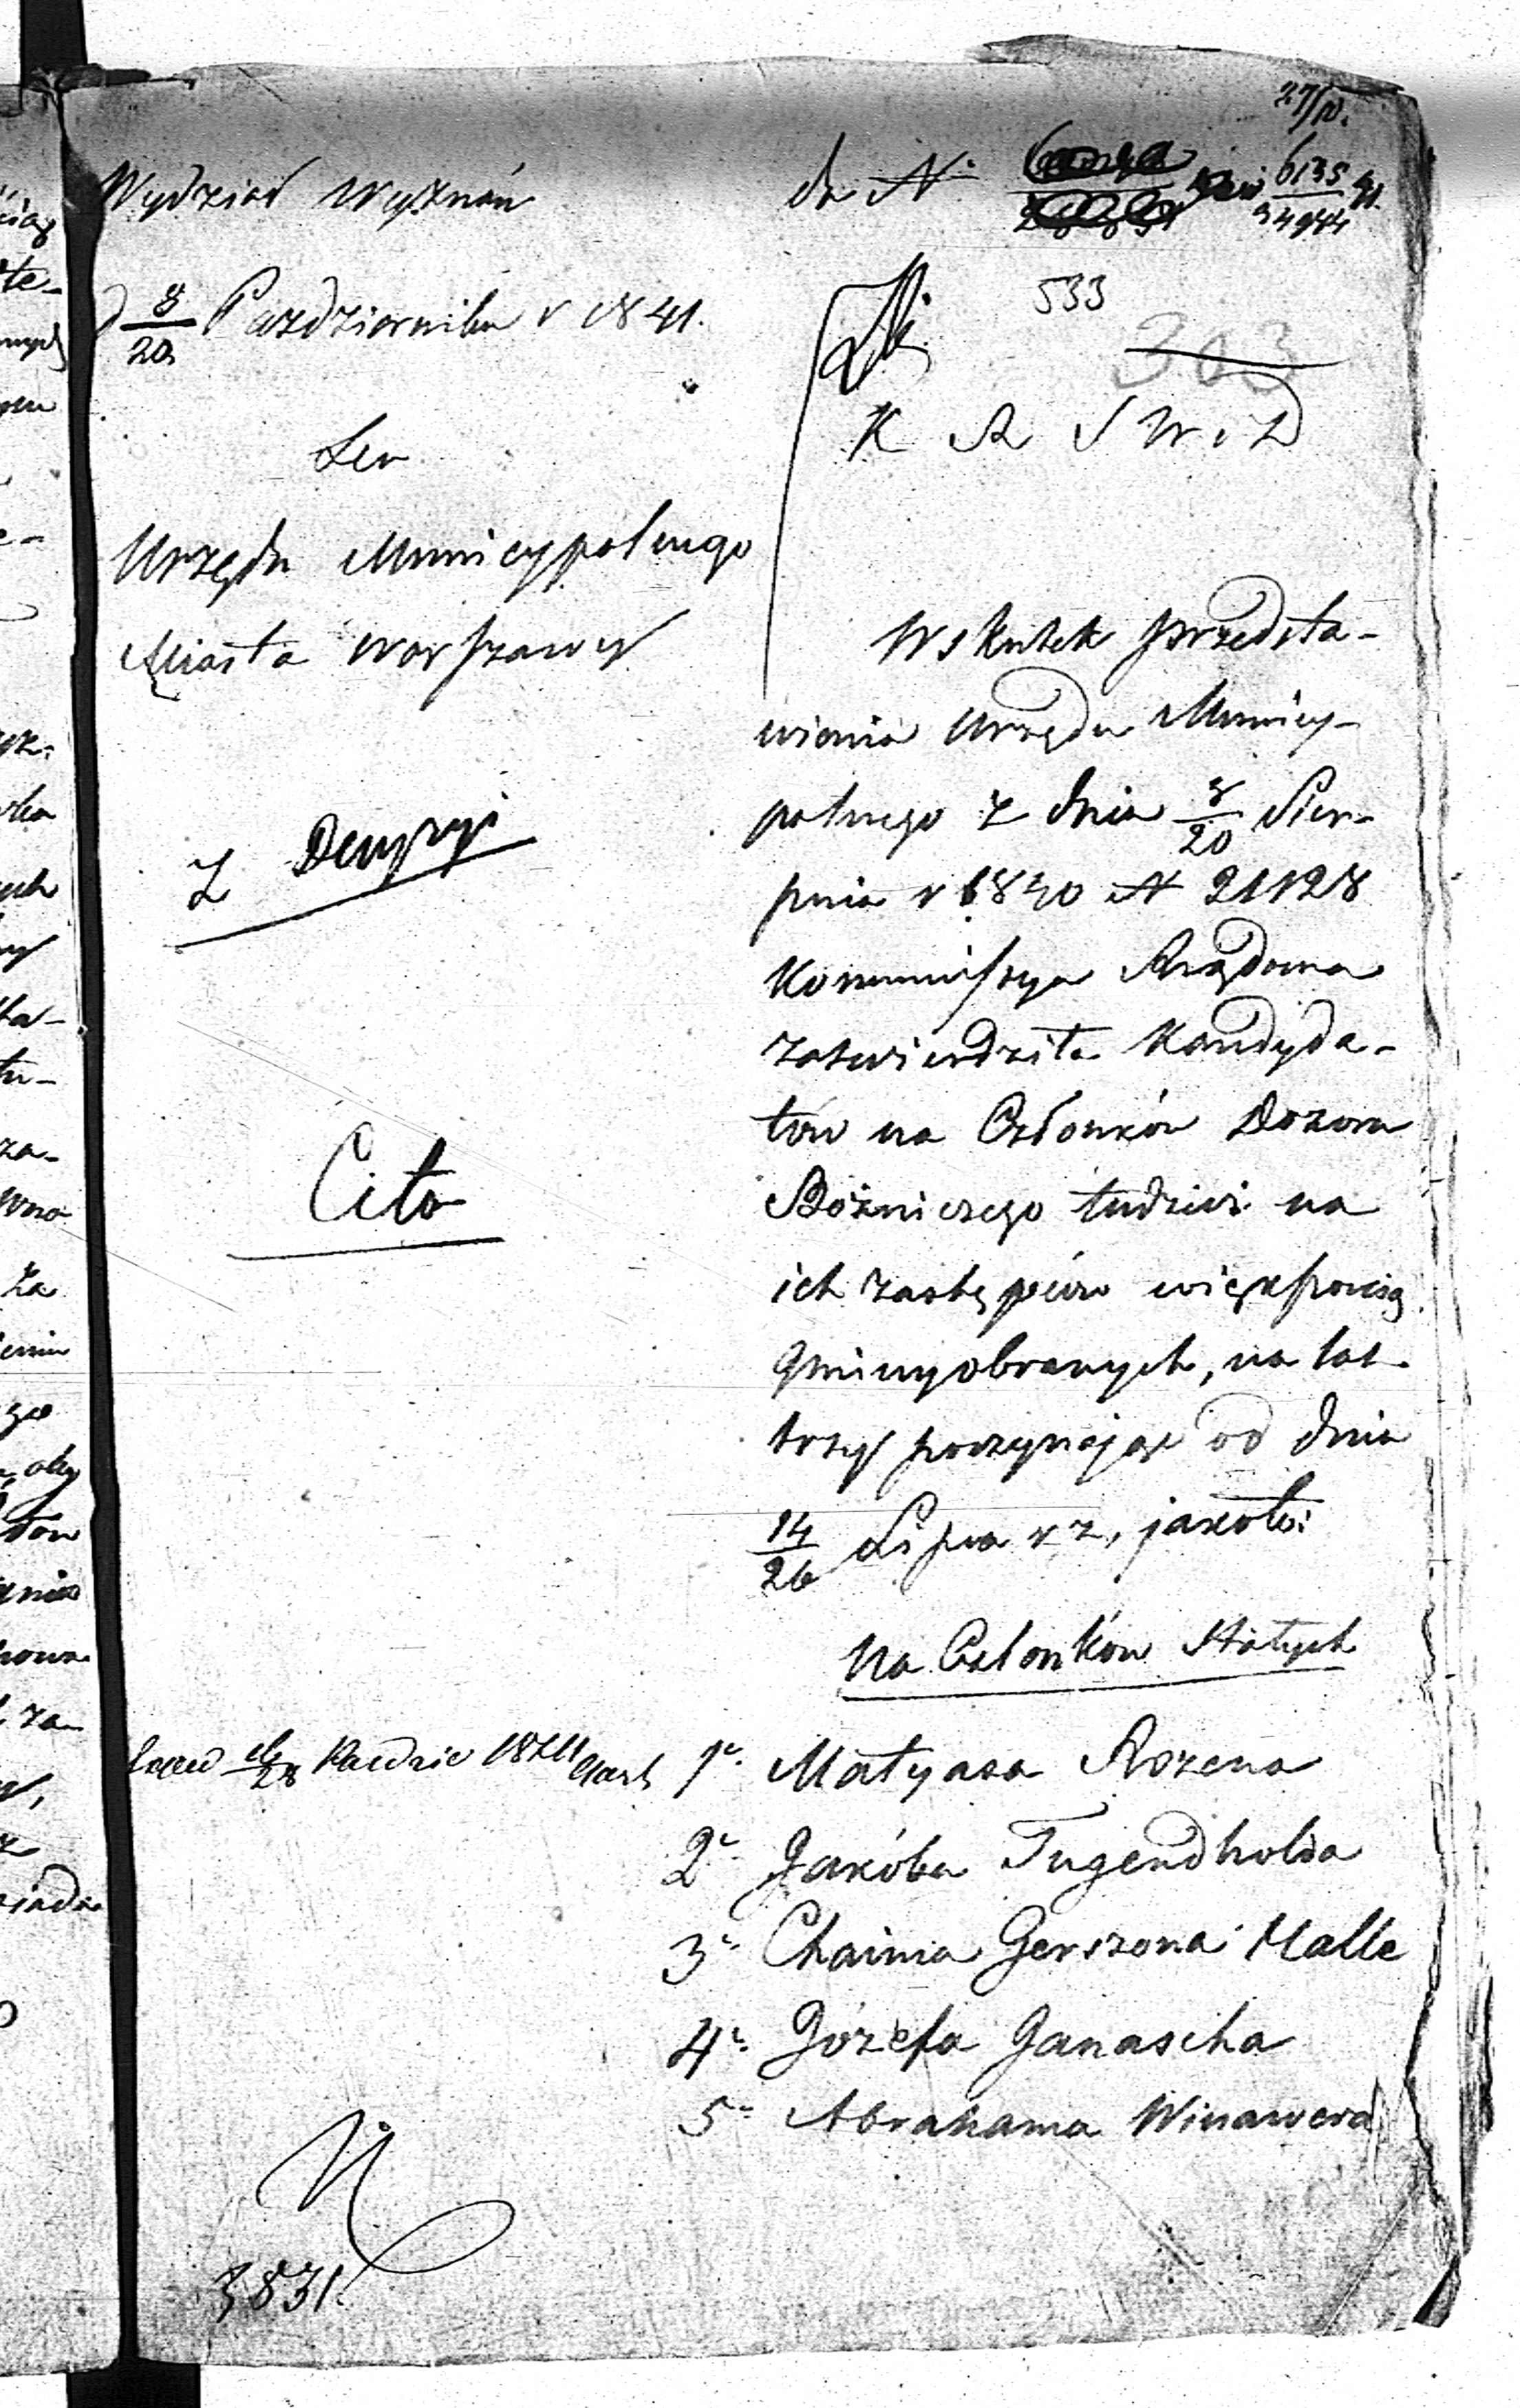 27/10.
Wydział Wyznań
do N. 6135 / 34944
d 8/20 Pazdziernika r 1841.
533
303
K R S W i D
Do
Urzędu Municypalnego
Miasta Warszawy
Z Decyzyi
Cito
W skutek przedsta-
wienia Urzędu Municy-
palnego z dnia 8/20 Sier-
pnia r 1840 N 21128
Kommissya Rządowa
zatwierdziła Kandyda-
tów na Członków Dozoru
Bóżniczego tudzież na
ich zastępców większością
Gminy obranych, na lat
trzy poczynając od dnia
14/26 Lipca r z, jakoto:
Na Członków Stałych
1o Matyasa Rozena
2o Jakóba Tugendholda
3o Chaima Gerszona Halle
4o Józefa Janascha
5o Abrahama Winawera
3831.